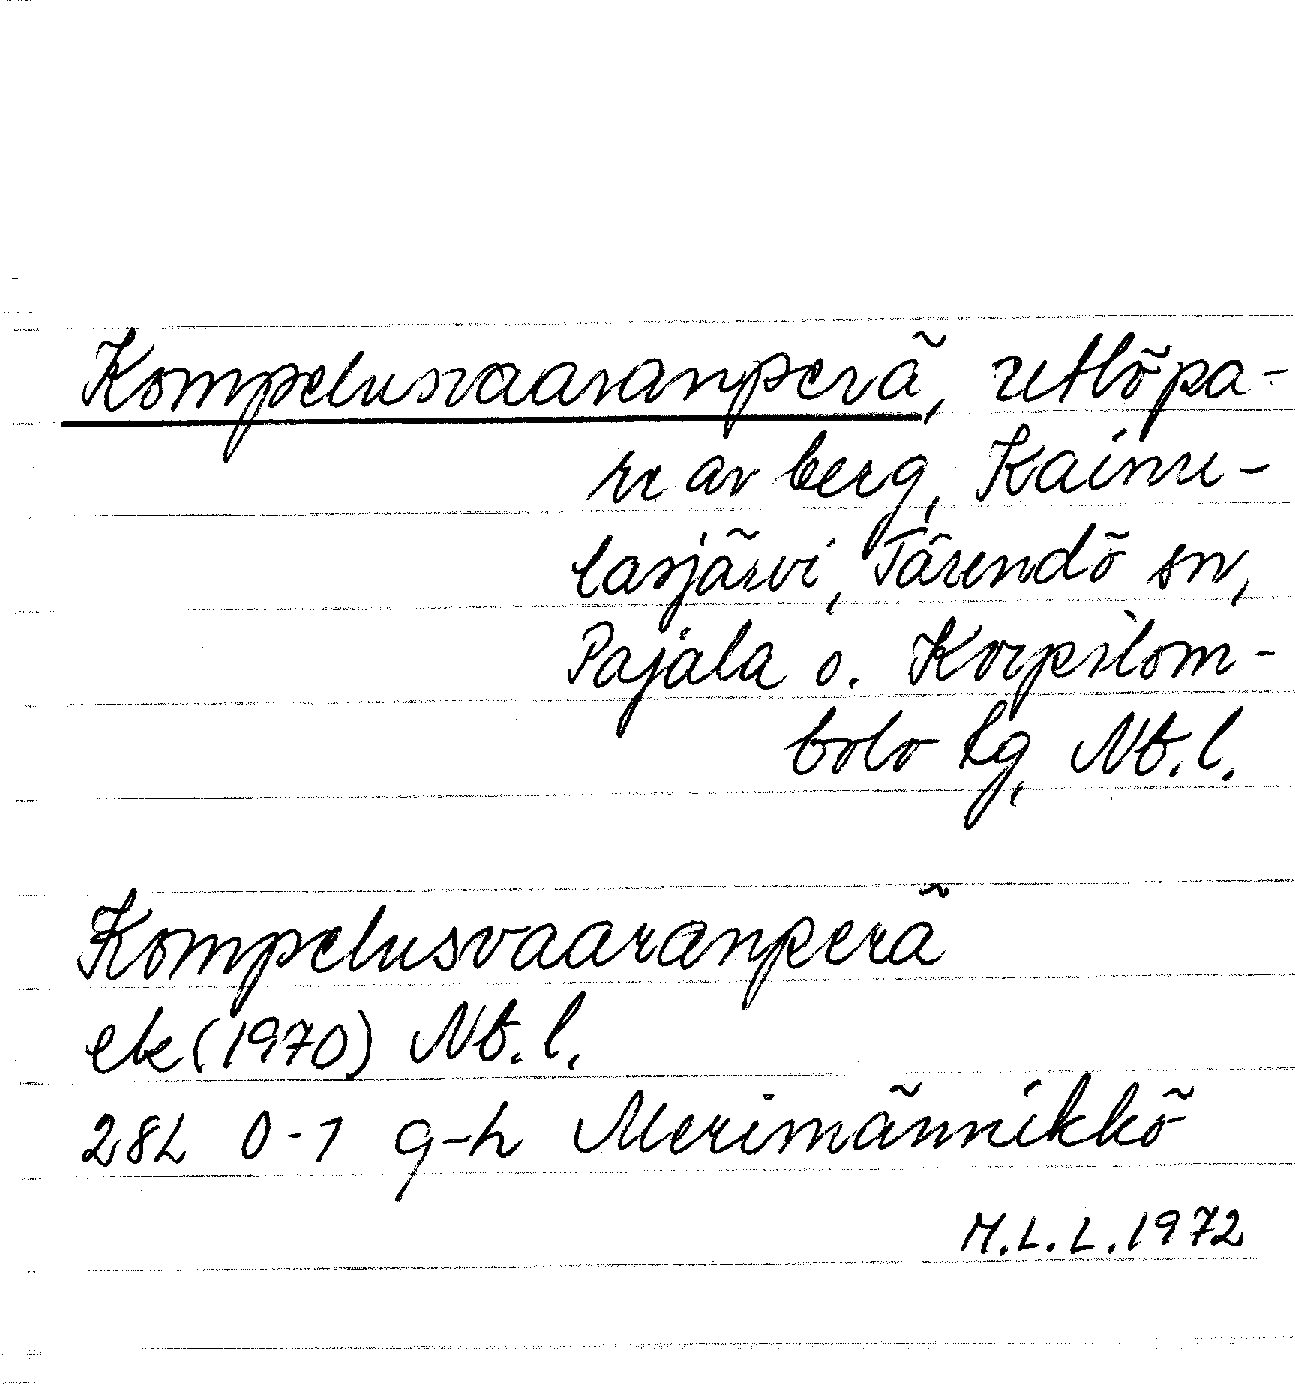 Kompelusvaaranperä, utlöpa-
re av berg, Kainu-
lasjärvi, Tärendö sn,
Pajala o. Korpilom-
bolo tg, Nb.l.
Kompelusvaaranperä
ek (1970) Nb.l.
28L 0-1 g-h Merimännikkö
M.L.L. 1972